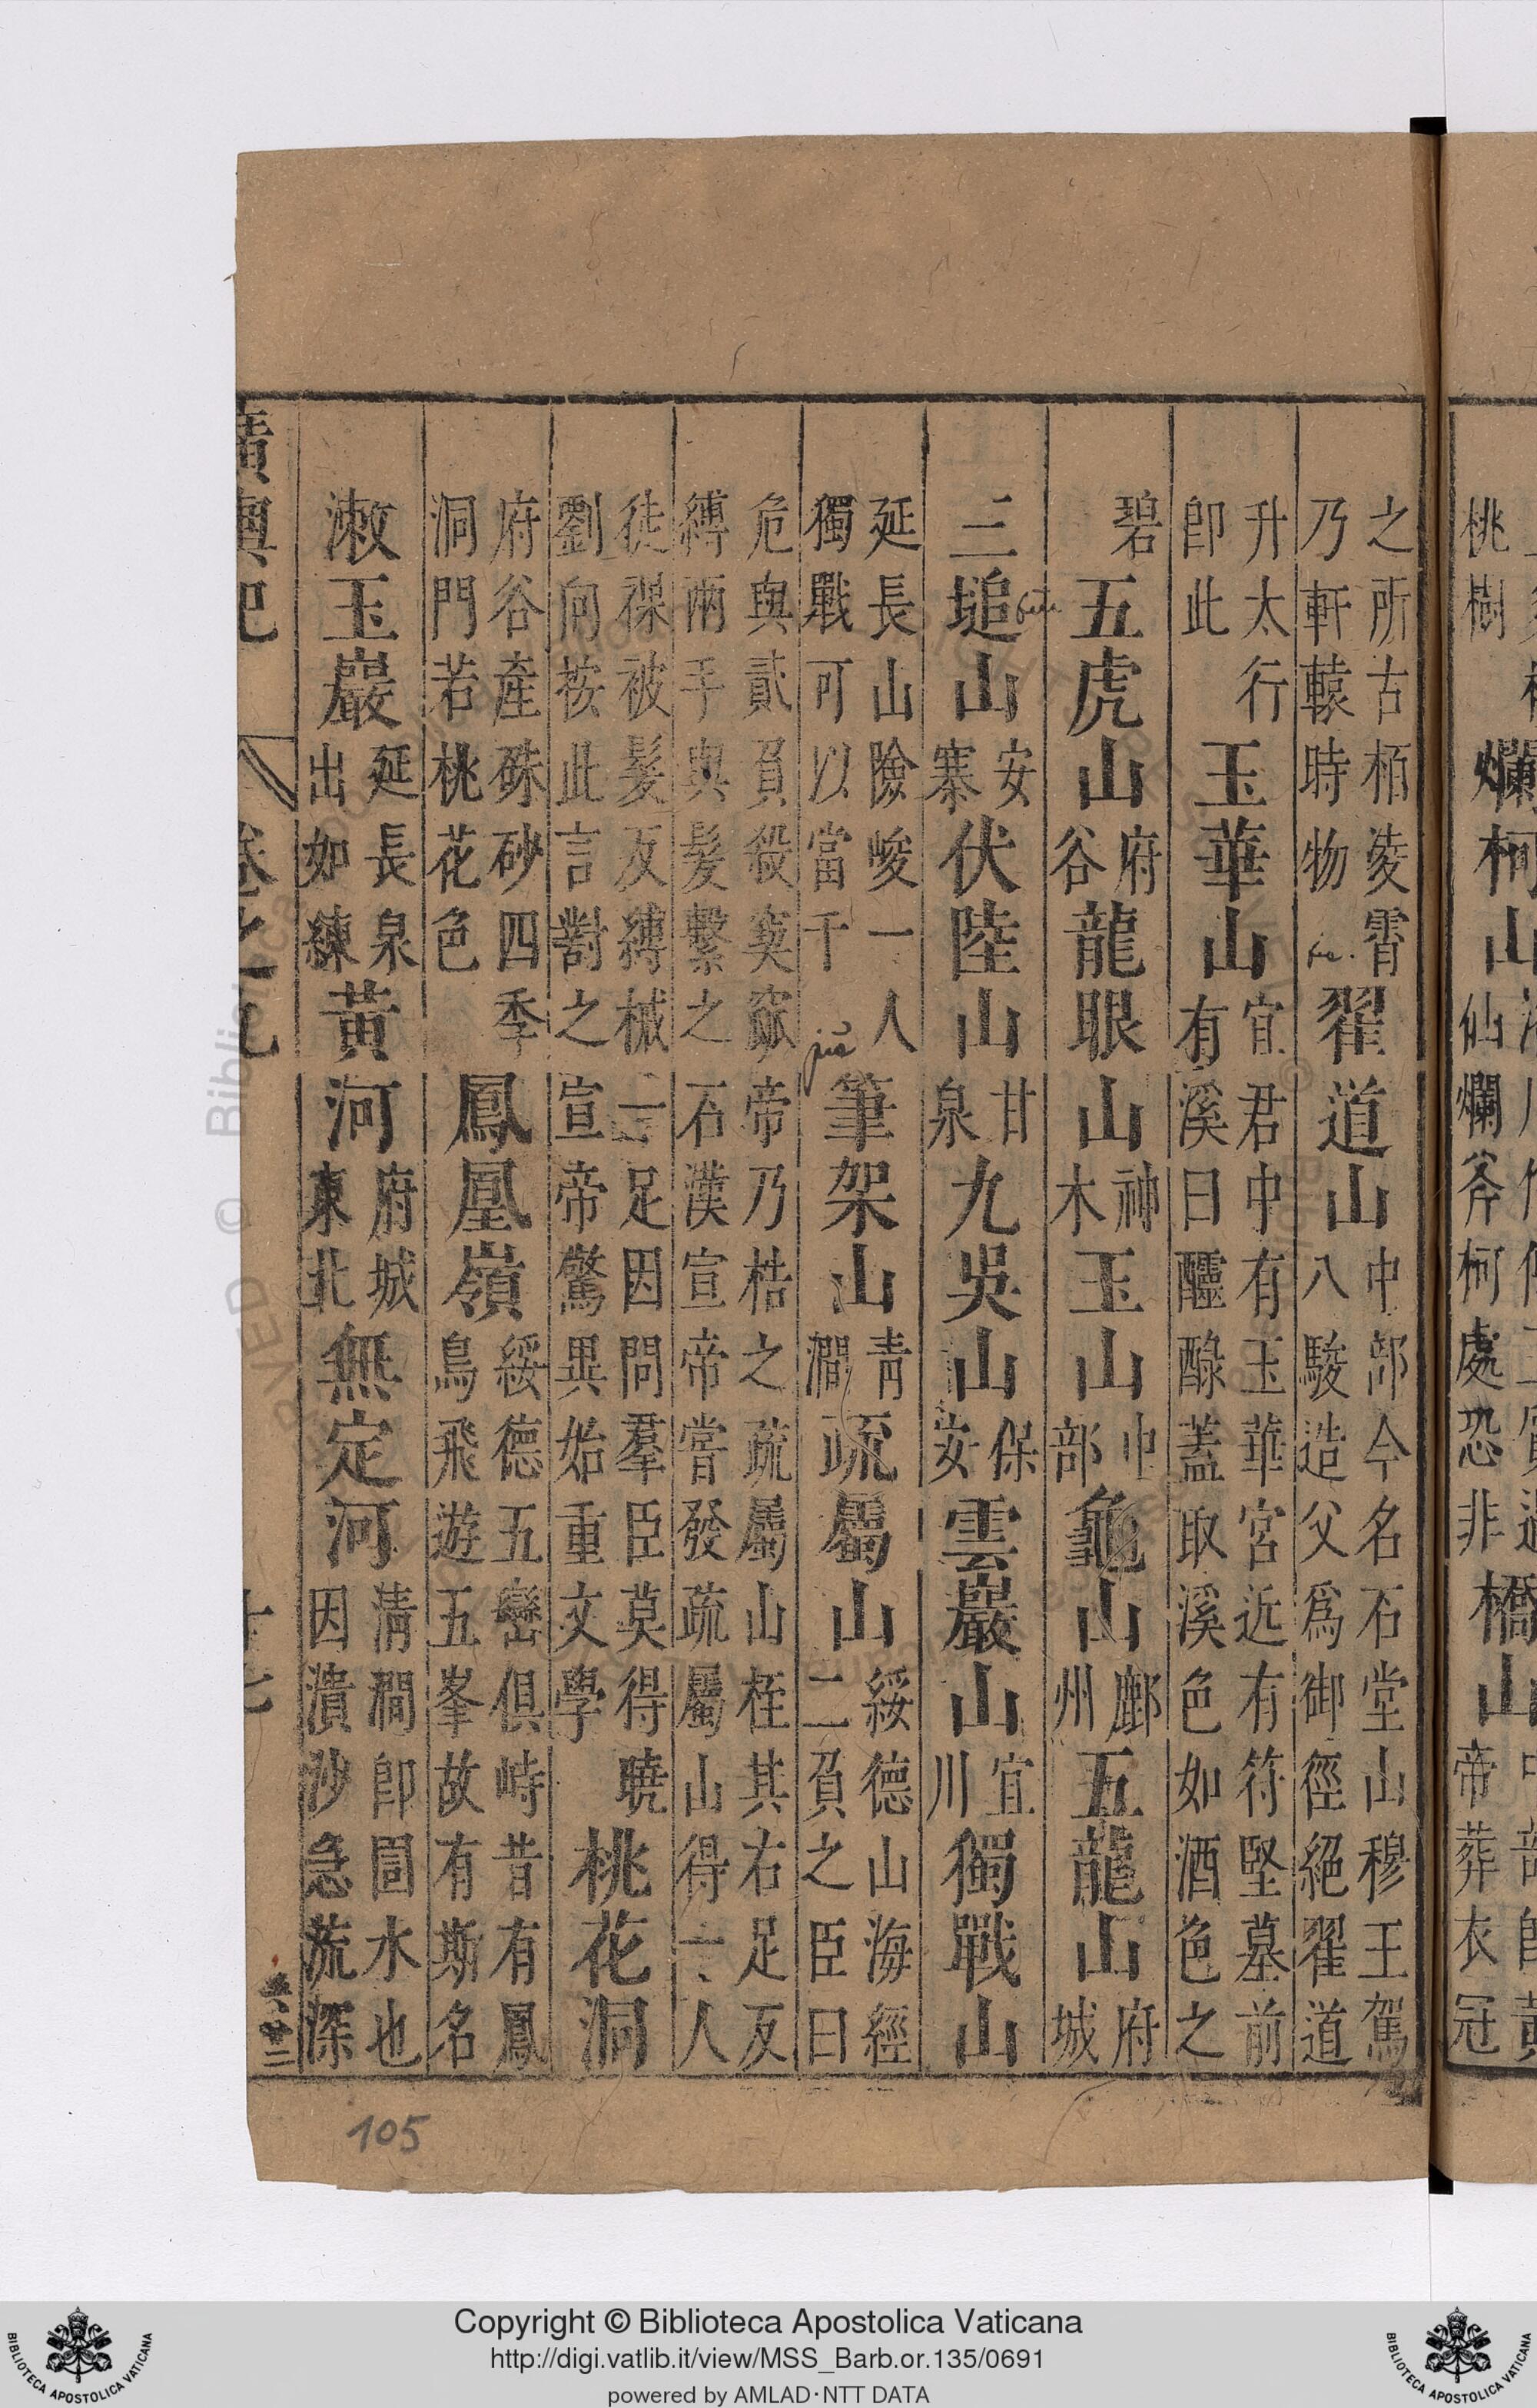 桃樹
爛柯山
仙爛斧柯處恐非
橋山
帝葬衣冠
之所古栢菱霄
乃軒轅時物
翟道山
中部今名石堂山穆王駕
八駿造父爲御徑絕翟道
升太行
即此
玉華山
宜君中有玉華宮近有符堅墓前
有溪曰醽醁蓋取溪色如酒色之
碧
五虎山
府
谷
龍眼山
神
木
玉山
中
部
龜山
鄜
州
五龍山
府
城
三塠山
安
寨
伏陸山
甘
泉
九吳山
保
安
雲巖山
宜
川
獨戰山
延長山險峻一人
獨戰可以當千
筆架山
青
澗
疏屬山
綏德山海經
二負之臣曰
危與貳負殺窫窳帝乃梏之疏屬山桎其右足反
縛兩手與髮繫之石漢宣帝嘗發疏屬山得一人
徒裸被髮反縛械一足因問羣臣莫得曉
劉向按此言對之宣帝驚異始重文學
桃花洞
府谷產硃砂四季
洞門若桃花色
鳳凰嶺
綏德五巒俱峙昔有鳳
鳥飛遊五峯故有斯名
漱玉巖
延長泉
出如練
黃河
府城
東北
無定河
清澗即圁水也
因潰沙急流深
廣輿記
卷之九
十七
105
Copyright © Biblioteca Apostolica Vaticana
http://digi.vatlib.it/view/MSS_Barb.or.135/0691
powered by AMLAD·NTT DATA
BIBLIOTECA APOSTOLICA VATICANA
BIBLIOTECA APOSTOLICA VATICANA